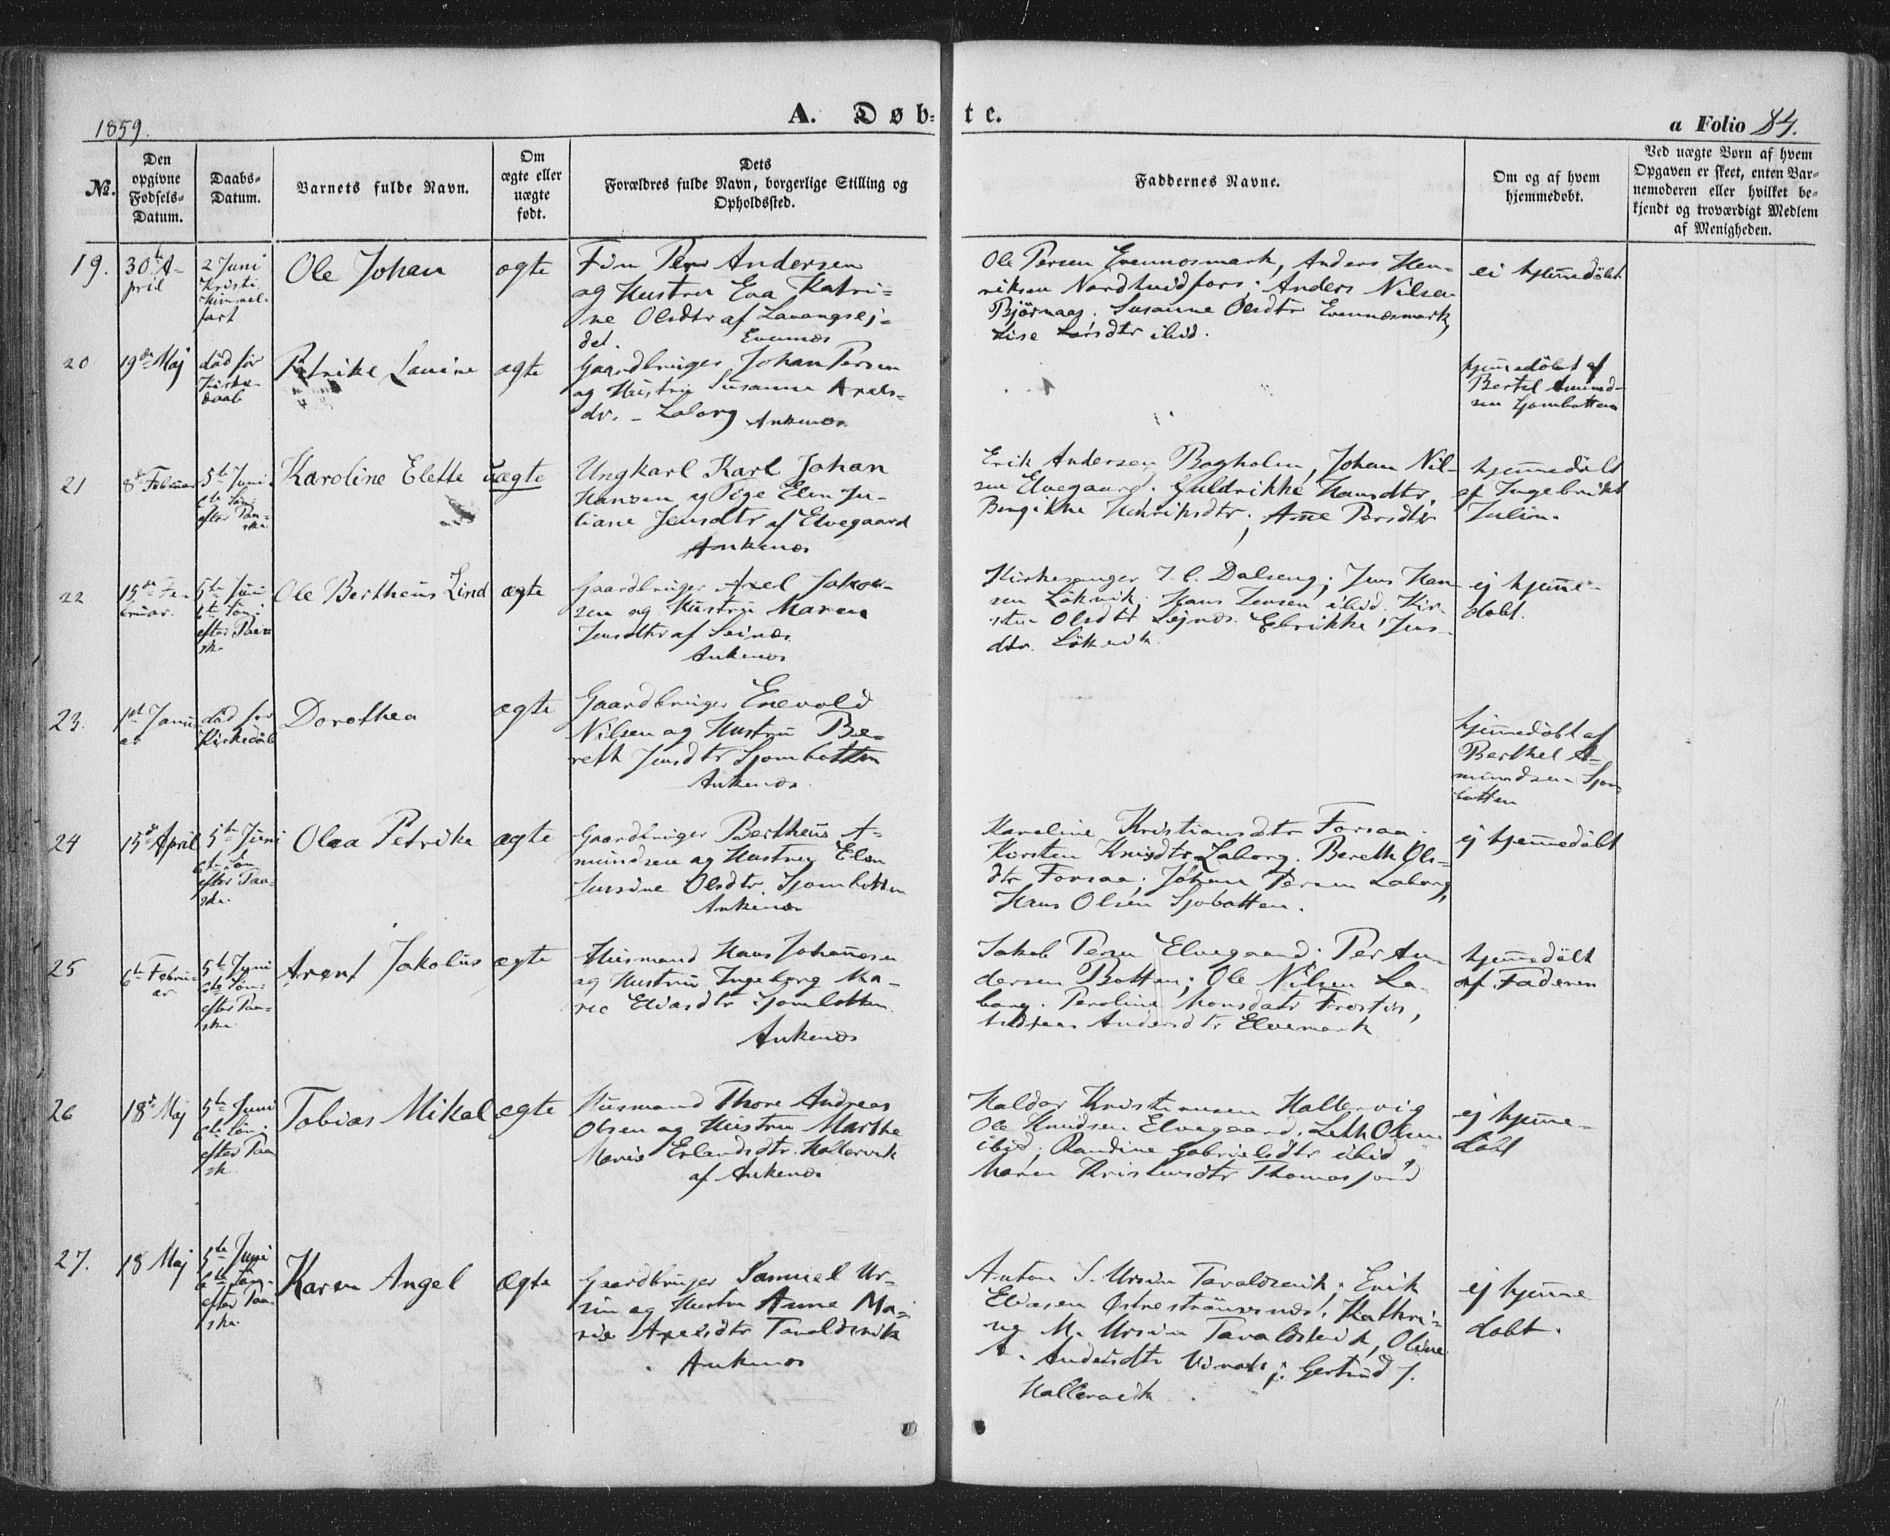 1859.
A. Døb-te.
a Folio 84.
No.
Den opgivne Fødsels-Datum.
Daabs-Datum.
Barnets fulde Navn.
Om ægte eller uægte født.
Dets Forældres fulde Navn, borgerlige Stilling og Opholdssted.
Faddernes Navne.
Om og af hvem hjemmedøbt.
Ved uægte Børn af hvem Opgaven er skeet, enten Bar-nemoderen eller hvilket be-kjendt og troværdigt Medlem af Menigheden.
19.
30te A-
pril
2 Juni
Kristi
Himmel-
fart
Ole Johan
ægte
Fin Peer Andersen
og Hustru Eva Katri-
ne Olsdtr af Lavangsej-
det. Evenæs
Ole Persen Evenæsmark, Anders Hen-
riksen Nordhuidfors; Anders Nilsen
Bjørnaas. Susanne Olsdtr Evenæsmark,
Lise Larsdtr ibid.
ei hjemmedøbt
20
19de Maj
død før
Kirke-
daab
Petrike Lavine
ægte
Gaardbruger Johan Persen
og Hustru Susanna Axels-
dr. - Laborg
Ankenæs
hjemmedøbt af
Bertel Amund-
sen Sjombotten
21
8de Februar
5te Juni
6te Søn:
efter Paa-
ske.
Karoline Elette
Uægte
Ungkarl Karl Johan
Hansen og Pige Elen Ju-
liane Jensdtr af Elvegaard
Ankenæs
Erik Andersen Bogholm, Johan Nil-
sen Elvegaard. Huldrikke Hansdtr,
Bengikke Henriksdtr; Anne Persdtr
hjemmedøbt
af Ingebrikt
Julin.
22
15de Fe-
bruar.
5te Juni
6te Søn:
efter Paa-
ske
Ole Bertheus Lind
ægte
Gaardbruger Axel Jakob-
sen og Hustru Maren
Jensdtr af Leinæs.
Ankenæs
Kirkesanger I. C. Dalseng; Jens Han-
sen Løkvik; Hans Jensen ibid. Kir-
sten Olsdtr Lejnæs. Elrikke Jens-
dtr. Løkvik.
ej hjemme-
døbt.
23.
1ste Janu-
ar
død før
Kirkedåb
Dorothea
ægte
Gaardbruger Enevold
Nilsen og Hustru Be-
reth Jensdtr Sjombotten
Ankenæs.
hjemmedøbt af
Berthel A-
mundsen Sjom-
botten
24
15de April
5te Juni
6te Søn
efter Paa-
ske.
Olea Petrika
ægte
Gaardbruger Bertheus A-
mundsen og Hustru Elen
Jensine Olsdtr. Sjombotten
Ankenæs
Karoline Kristiansdtr Forsaa.
Kirsten Knudsdtr Laborg. Bereth Ols-
dtr Forsaa; Johan Persen Laborg,
Hans Olsen Sjobotten.
ej hjemmedøbt
25
6te Febru-
ar
5te Juni
6te Søn-
efter Paa-
ske
Arent Jakobus
ægte
Husmand Hans Johannesen
og Hustru Ingeborg Ma-
rie Eliasdtr. Sjombotten.
Ankenæs
Jakob Persen Elvegaard; Per An-
dersen Botten; Ole Nilsen La-
borg. Peroline Monsdatr Frostis,
Andersdtr Elvemark
hjemmedøbt
af Faderen
26
18de Maj
5te Juni
6te Søn:
efter Paa-
sk.
Tobias Mikal
ægte
Husmand Thore Andreas
Olsen og Hustru Marthe
Marie Erlandsdtr. Hallervik
af Ankenæs
Haldor Kristensen Hallervig
Ole Knudsen Elvegaard; Olsen
ibid; Randine Gabrielsdtr ibid,
Maren Kristensdtr Thomasjord
ej hjemme-
døbt
27.
18 Maj
5te Juni
6te Søn-
efter Paa-
ske
Karen Angel
Ægte
Gaardbruger Samuel Ur-
sin og Hustru Anne Ma-
rie Axelsdtr Taraldsvik
Ankenæs
Anton S. Ursin Taraldsvik; Erik
Eliasen Østrestrømsnæs. Kathri-
ne M. Ursin Taraldsvik, Oline
A. Andersdtr; Gertrud J.
Hallervik.
ej hjemme
døbt.